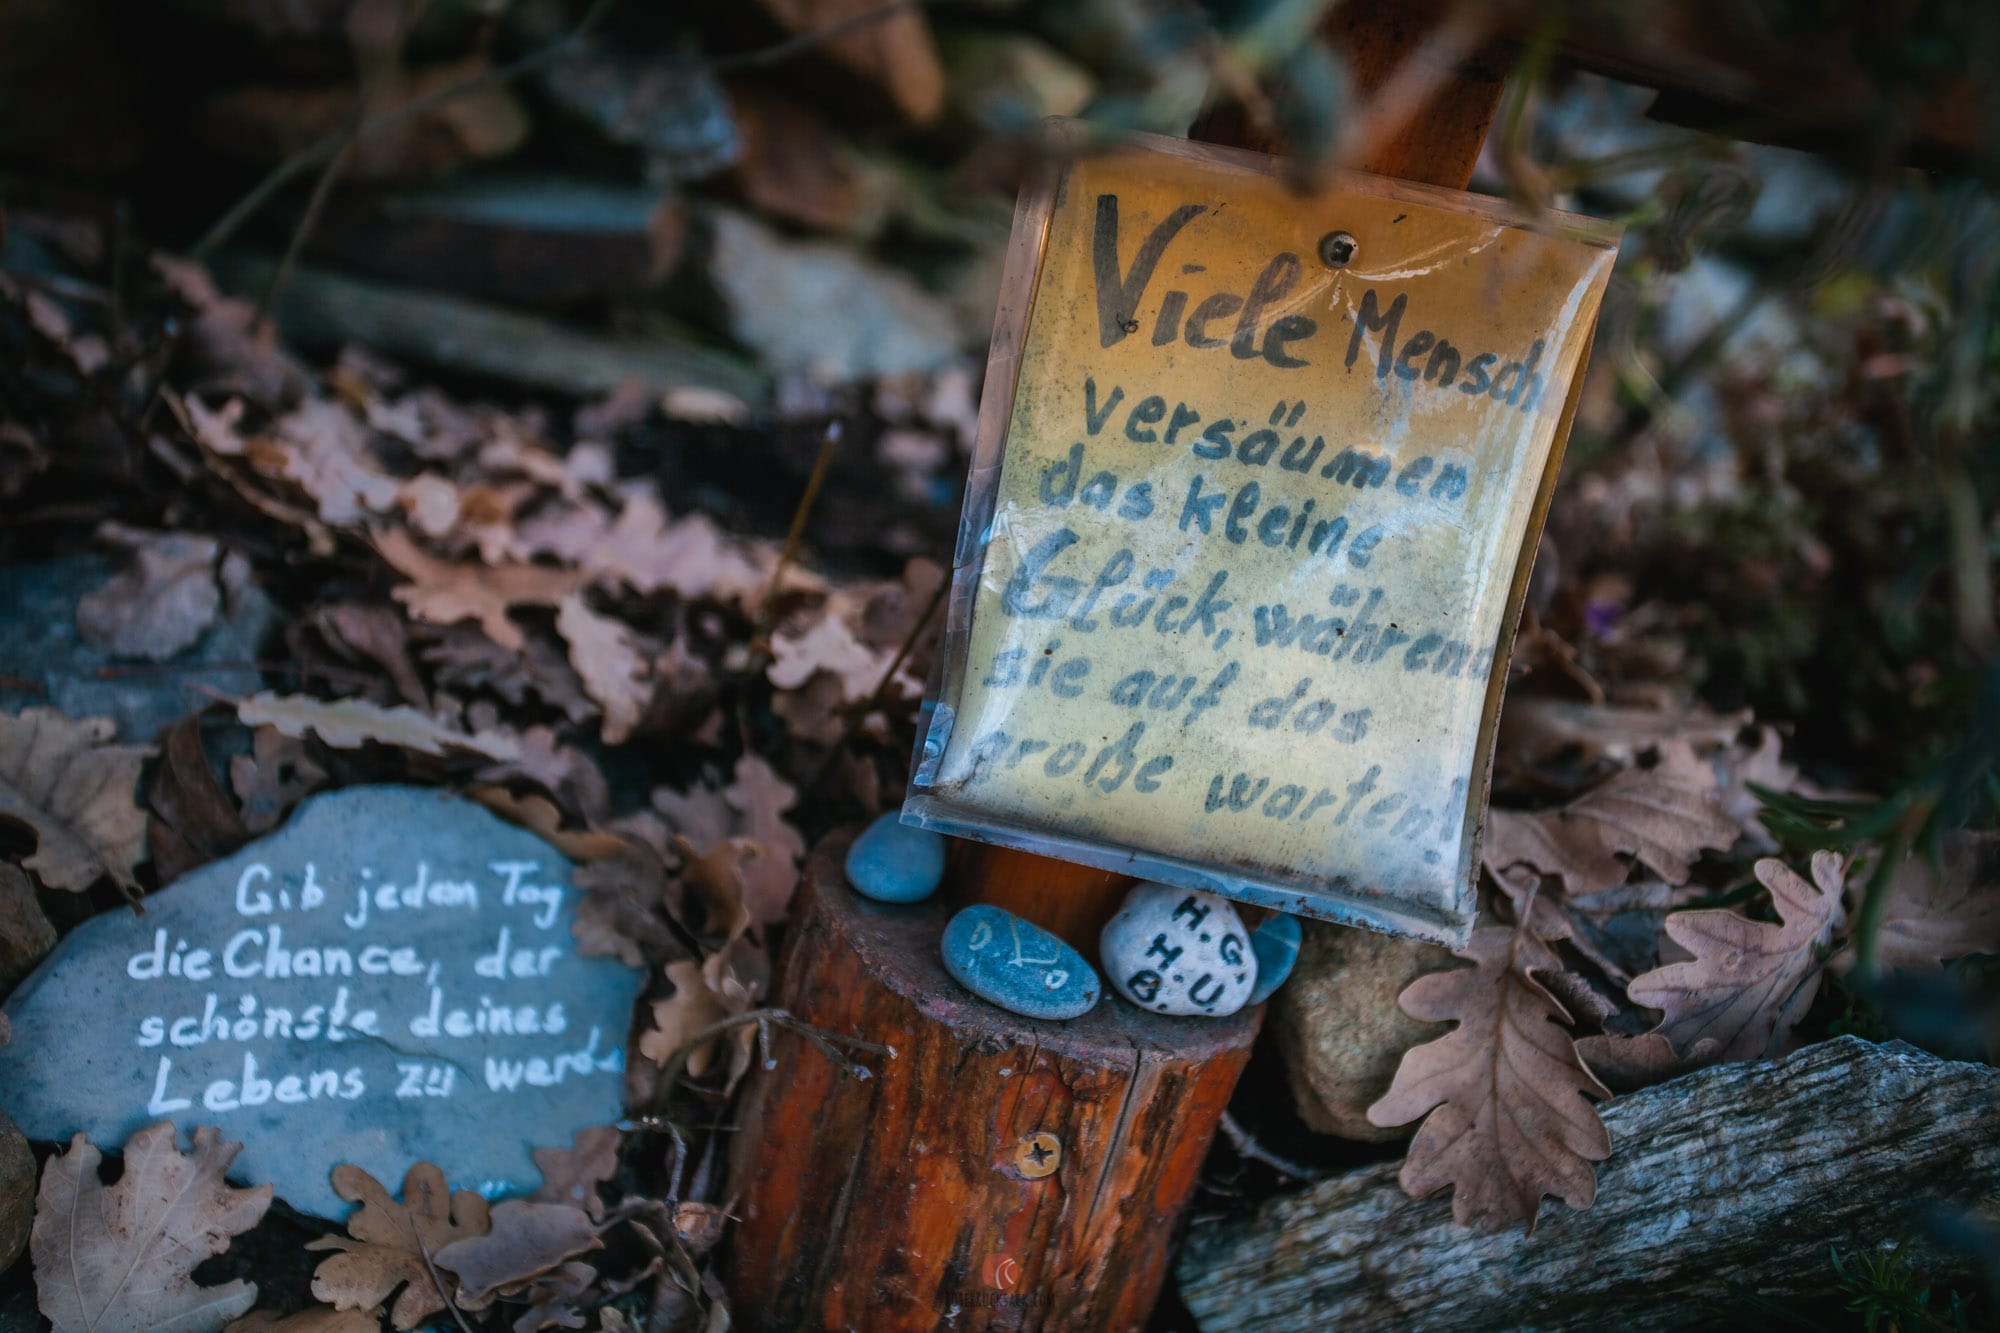 Viele Mensch
versäumen
das kleine
Glück, während
sie auf das
große warten!
Gib jedem Tag
die Chance, der
schönste deines
Lebens zu werd
H.G.
H.
B. U.